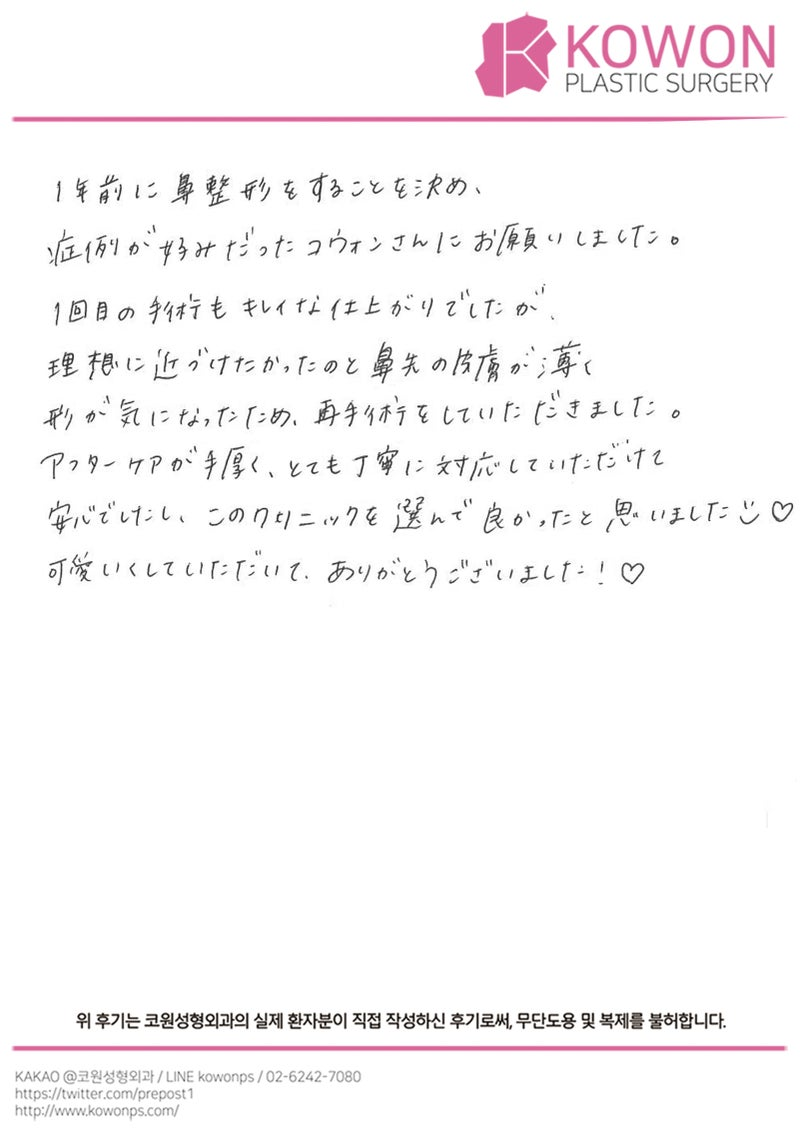 KOWON
PLASTIC SURGERY
1年前に鼻整形をすることを決め、
症例が好みだったコウォンさんにお願いしました。
1回目の手術もキレイな仕上がりでしたが、
理想に近づけたかったのと鼻先の皮膚が薄く
形が気になったため、再手術をしていただきました。
アフターケアが手厚く、とても丁寧に対応していただけて
安心でしたし、このクリニックを選んで良かったと思いました☺♡
可愛いくしていただいて、ありがとうございました!♡
위 후기는 코원성형외과의 실제 환자분이 직접 작성하신 후기로써, 무단도용 및 복제를 불허합니다.
KAKAO @코원성형외과 / LINE kowonps / 02-6242-7080
https://twitter.com/prepost1
http://www.kowonps.com/